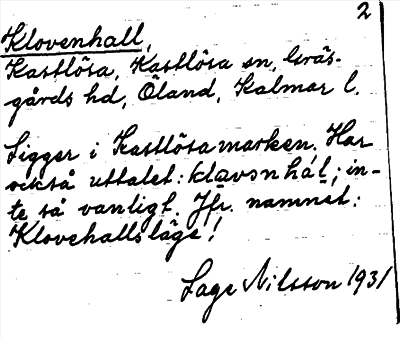 2
Klovenhall,
Kastlösa, Kastlösa sn, Gräs-
gårds hd, Öland, Kalmar l.
Ligger i Kastlösamarken. Har
också uttalet: klavənhál; in-
te så vanligt. Jfr. namnet:
Klovehallsläge!
Lage Nilsson 1931